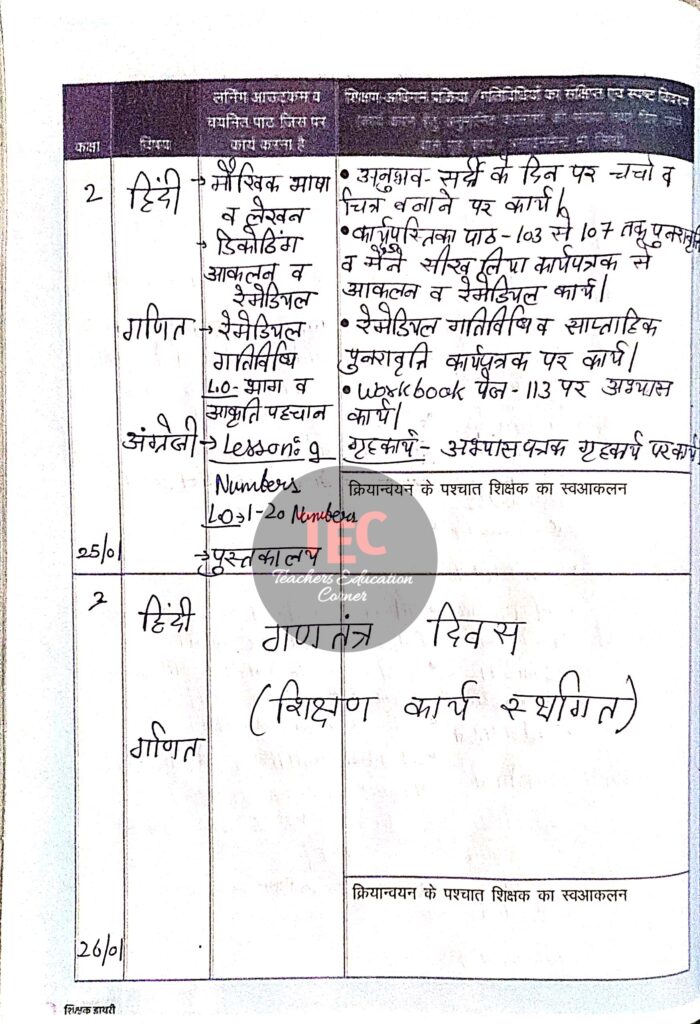 लर्निंग आउटकम व
चयनित पाठ जिस पर
कार्य करना है
शिक्षण अधिगम प्रक्रिया/गतिविधियों का संक्षिप्त एवं स्पष्ट विवरण
कक्षा
विषय
2
हिंदी
→ मौखिक भाषा
व लेखन
→ डिकोडिंग
आकलन व
रेमेडियल
• अनुभव - सर्दी के दिन पर चर्चा व
चित्र बनाने पर कार्य।
• कार्यपुस्तिका पाठ - 103 से 107 तक पुनरावृत्ति
व मैंने सीख लिया कार्यपत्रक से
आकलन व रेमेडियल कार्य।
गणित
→ रेमेडियल
गतिविधि
L.O- भाग व
आकृति पहचान
• रेमेडियल गतिविधि व साप्ताहिक
पुनरावृत्ति कार्यपत्रक पर कार्य।
• Workbook पेज - 113 पर अभ्यास
कार्य।
अंग्रेजी
→ Lesson: 9
Numbers
L.O→1-20 Numbers
→ पुस्तकालय
गृहकार्य - अभ्यासपत्रक गृहकार्य पर कार्य
क्रियान्वयन के पश्चात शिक्षक का स्वआकलन
25/01
TEC
Teachers Education
Corner
2
हिंदी
गणतंत्र दिवस
(शिक्षण कार्य स्थगित)
गणित
क्रियान्वयन के पश्चात शिक्षक का स्वआकलन
26/01
शिक्षक डायरी